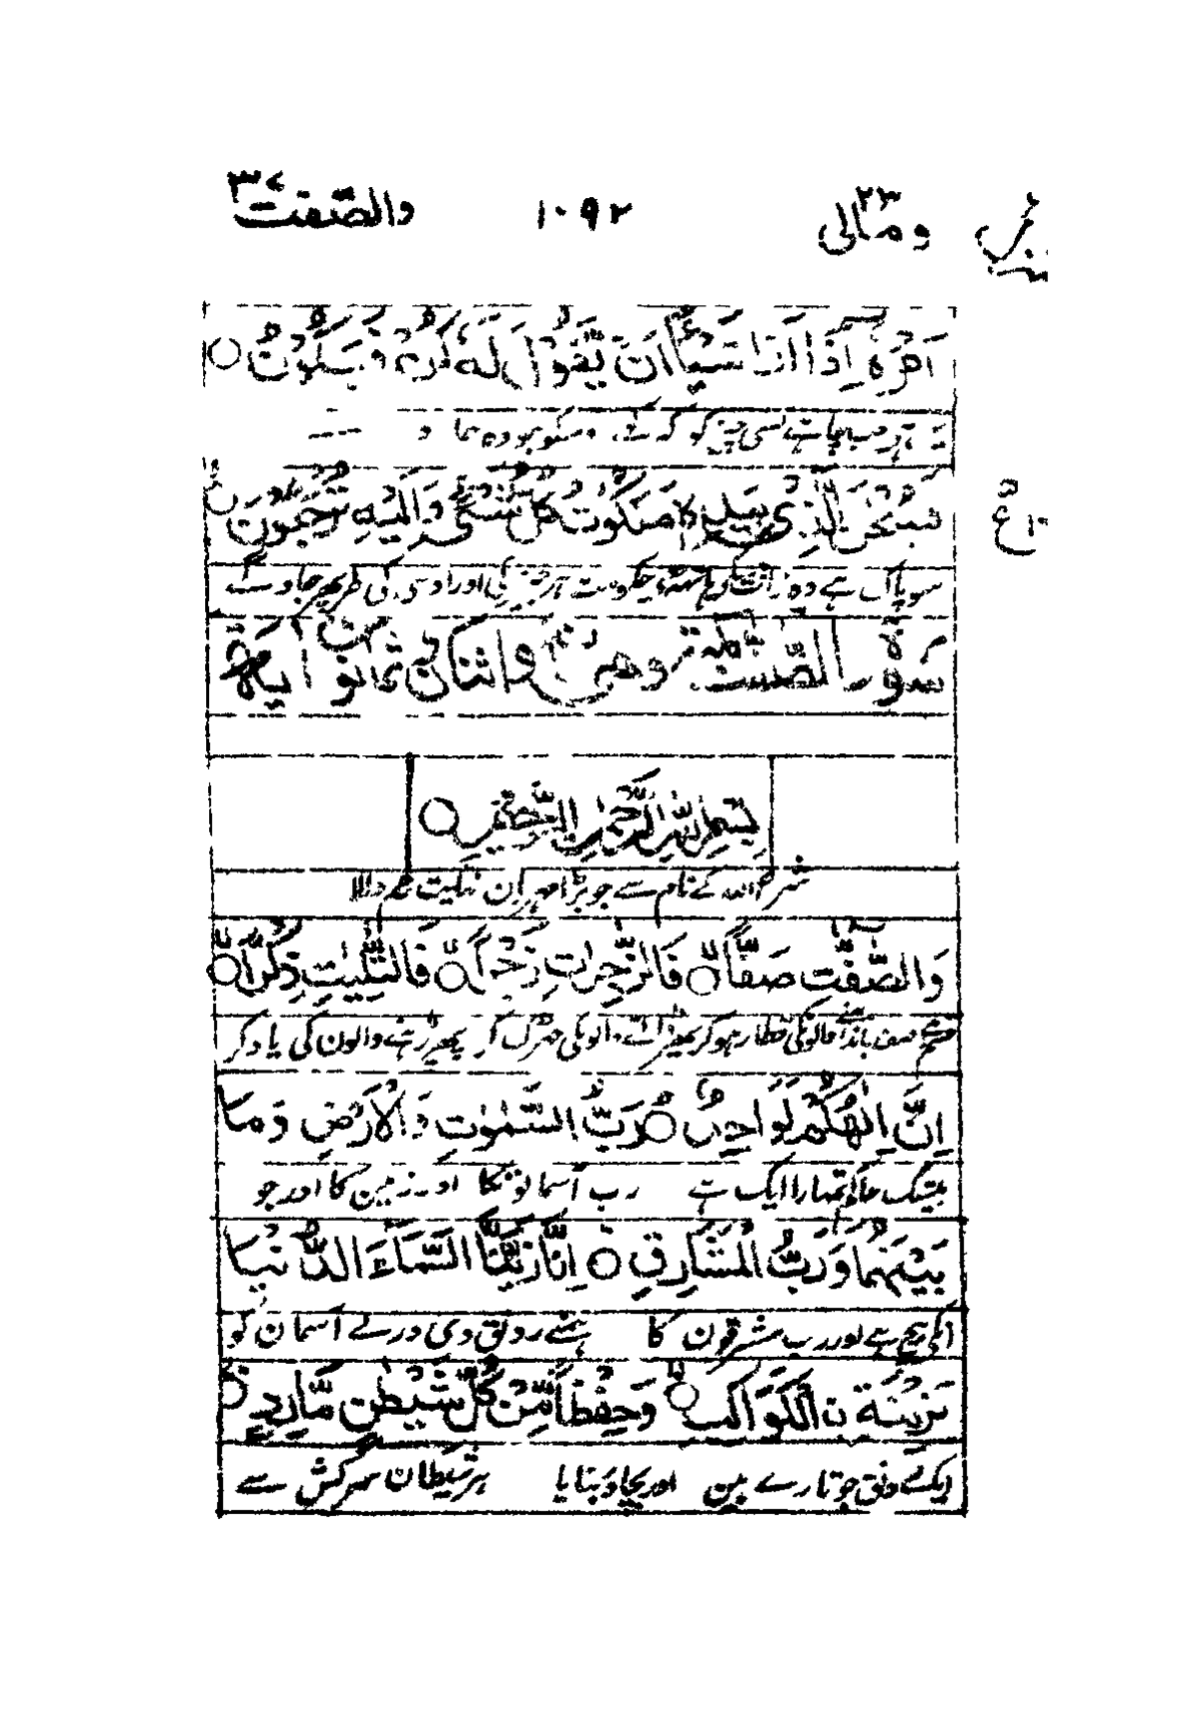 ومالی ۲۳ ۱۰۹۲ والصّٰفّٰت ۳۷
اَمْرُهٗ اِذَا اَرَادَ شَیْـًٔا اَنْ یَّقُوْلَ لَهٗ كُنْ فَیَكُوْنُ ○
کسی چیز کو کہے
فَسُبْحٰنَ الَّذِیْ بِیَدِهٖ مَلَكُوْتُ كُلِّ شَیْءٍ وَّاِلَیْهِ تُرْجَعُوْنَ ○
سو پاک ہے وہ ذات حکومت ہر چیز کی اور اوسی کی طرف پھر جاؤ گے
ع ۱۰
سورة الصّٰفّٰت مكية وهی واثنان ثمانون اية
بِسْمِ اللّٰهِ الرَّحْمٰنِ الرَّحِیْمِ ○
شروع اللہ کے نام سے جو بڑا مہربان والا
وَالصّٰٓفّٰتِ صَفًّا ○ فَالزّٰجِرٰتِ زَجْرًا ○ فَالتّٰلِیٰتِ ذِكْرًا ○
قسم ہے صف باندہنے والونکی قطار ہوکر پھر والونکی جھڑک کر پھر پڑہنے والون کی یاد کر
اِنَّ اِلٰهَكُمْ لَوَاحِدٌ ○ رَبُّ السَّمٰوٰتِ وَالْاَرْضِ وَمَا
بیشک حاکم تمہارا ایک ہے رب آسمانونکا اور زمین کا اور جو
بَیْنَهُمَا وَرَبُّ الْمَشَارِقِ ○ اِنَّا زَیَّنَّا السَّمَآءَ الدُّنْیَا
انکی بیچ ہے اور رب مشرقون کا ہمنے رونق دی ورلے آسمان کو
بِزِیْنَةِ نِ الْكَوَاكِبِ ○ وَحِفْظًا مِّنْ كُلِّ شَیْطٰنٍ مَّارِدٍ ○
ایک رونق جو تارے ہین اور بچاؤ بنایا ہر شیطان سرکش سے